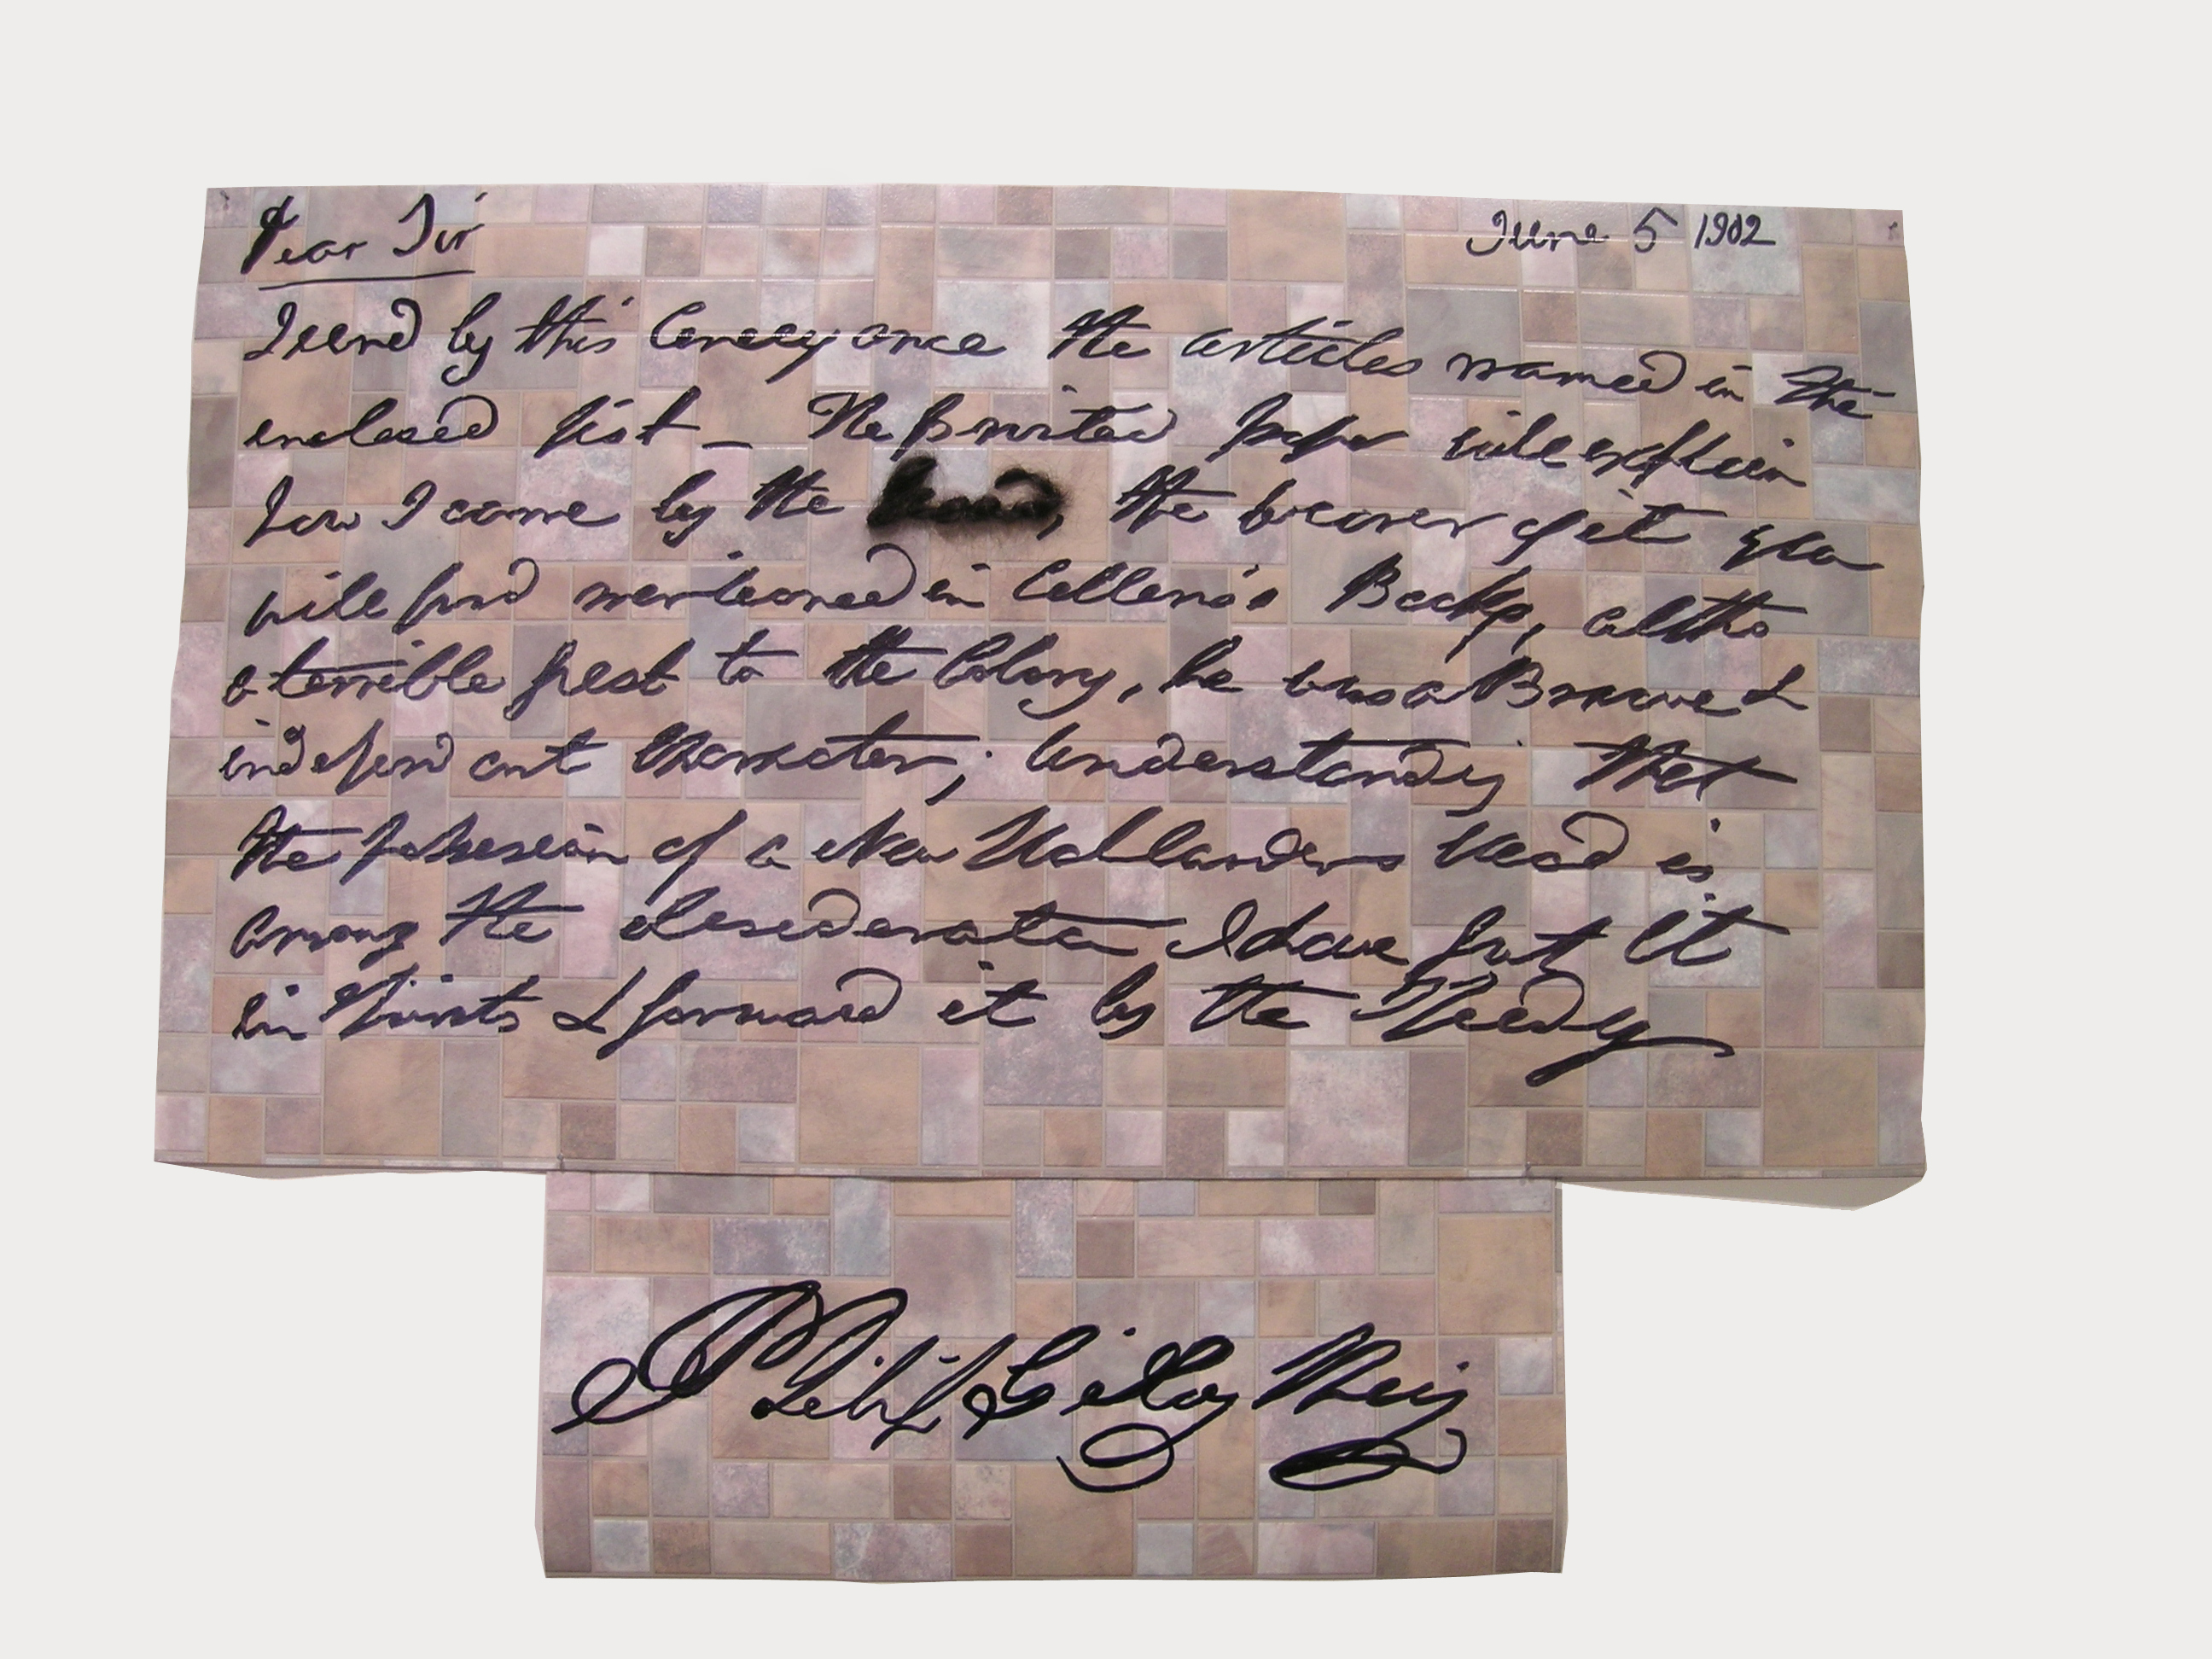 Dear Sir June 5 1902
I send by this Conveyance the articles named in the
enclosed list — The Printed paper will explain
how I came by the head, the bearer of it you
will find mentioned in Collens's Books, altho
a terrible pest to the Colony, he was a Brave &
independant Character; Understandig that
the possession of a New Hollanders head is
among the desiderata I have put it
in Spirits & forward it by the Speedy
Philip Gidley King